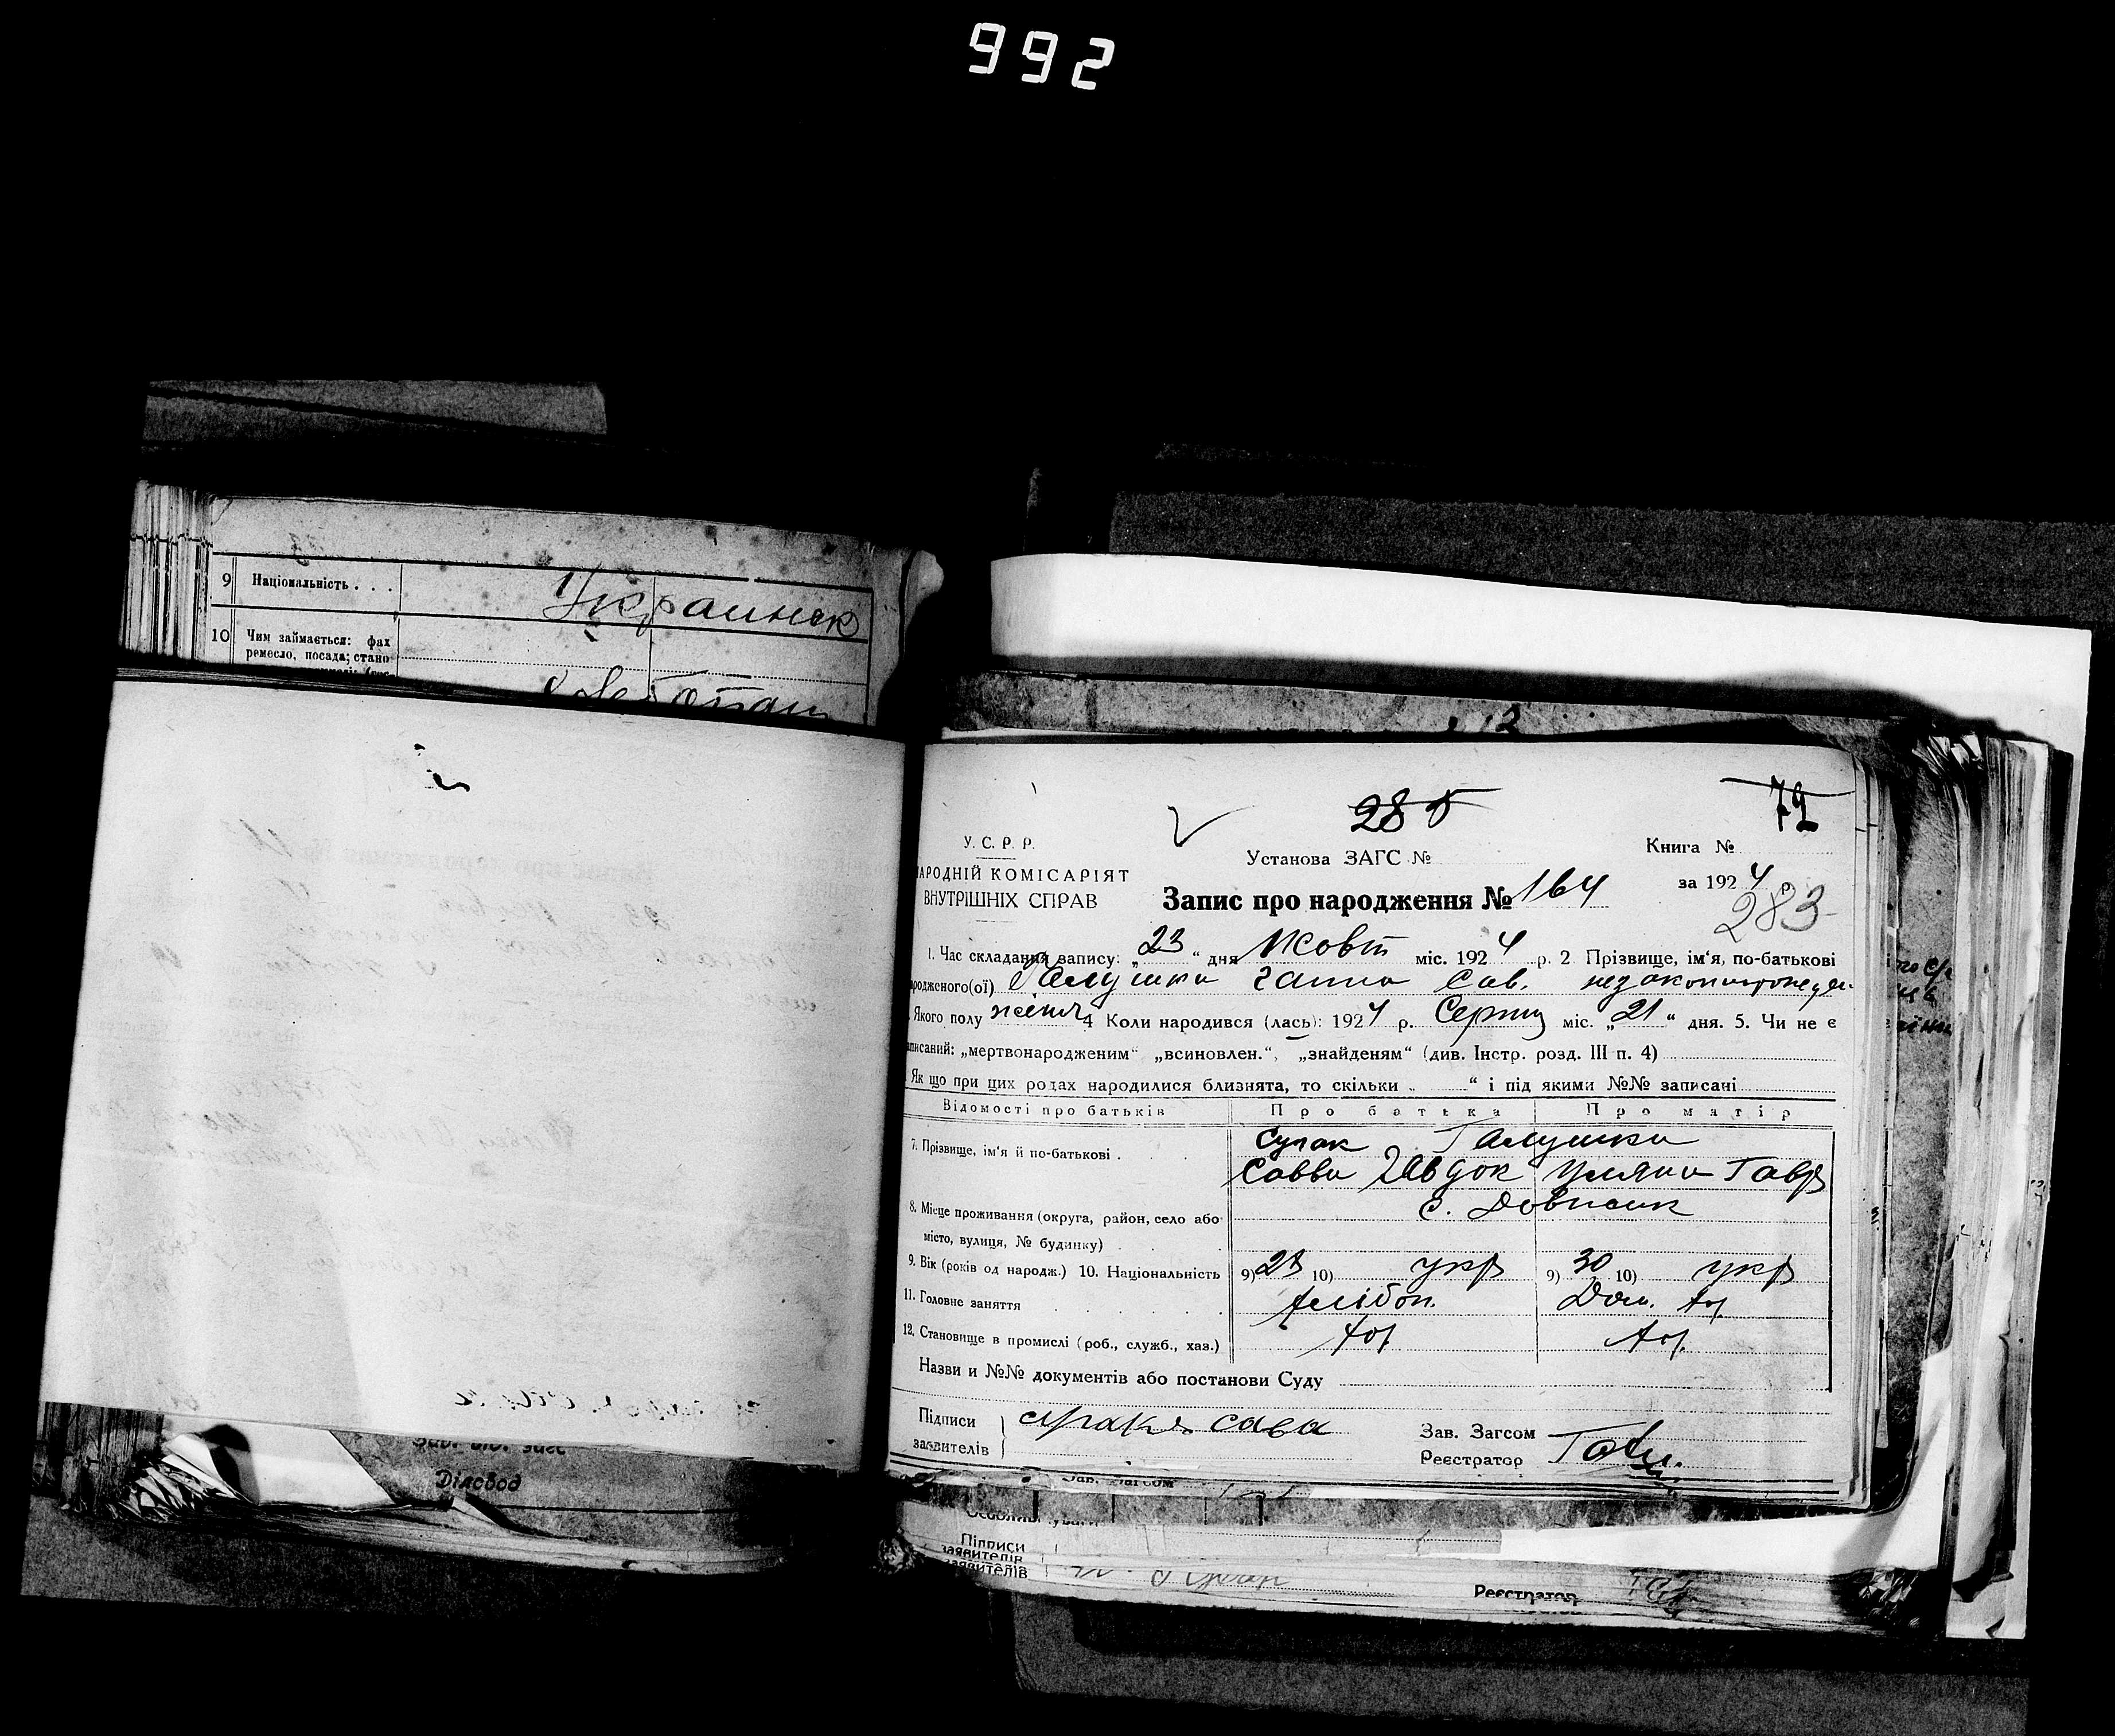 992
9 Національність . . .
Украинск
10 Чим займається: фах
ремесло, посада; стано
285
72
У. С. Р. Р.
Установа ЗАГС №
Книга №
НАРОДНІЙ КОМІСАРІЯТ
за 1924 р.
ВНУТРІШНІХ СПРАВ
Запис про народження № 164
283
1. Час складання запису: „23“ дня Жовт міс. 1924 р. 2 Прізвище, ім'я, по-батькові
родженого(ої) Галушка Ганна Сав.
Якого полу жіноч 4 Коли народився (лась): 1924 р. Серпн міс. „21“ дня. 5. Чи не є
аписаний: „мертвонародженим“ „всиновлен.“, „знайденям“ (див. Інстр. розд. III п. 4)
Як що при цих родах народилися близнята, то скільки „ “ і під якими №№ записані
Відомості про батьків
Про батька
Про матір
7. Прізвище, ім'я й по-батькові .
Галушка
Савва Явдок
Уляна Гавр
8. Місце проживання (округа, район, село або
місто, вулиця, № будинку)
с.
9. Вік (років од народж.) 10. Національність
9) 23 10) укр
9) 30 10) укр
11. Головне заняття
хлібоп.
Дом. хоз
12. Становище в промислі (роб., служб., хаз.)
хоз
хоз.
Назви и №№ документів або постанови Суду
Підписи
заявителів
сава
Зав. Загсом
Реєстратор
Зав. від. загс
Діловод
Зав. Загсом
Підписи
заявителів
заявителів
Реєстратор